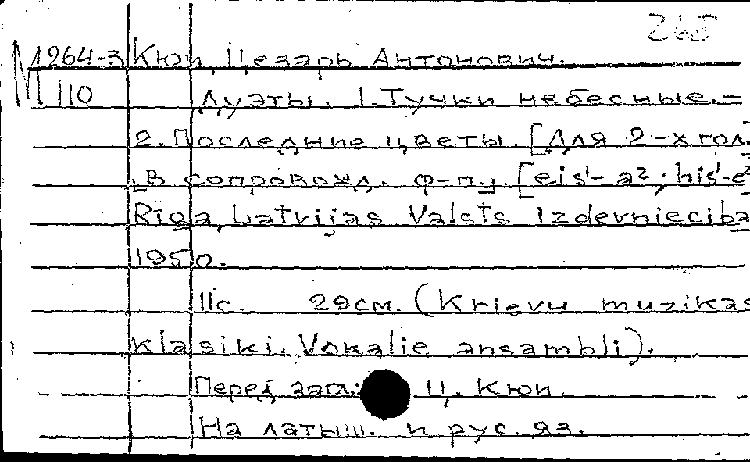 265
М 264-3 Кюи, Цезарь Антонович.
110 Дуэты. 1. Тучки небесные. –
2. Последние цветы. [Для 2-х гол.
в сопровожд. ф-п., [eis¹- a²; his¹-e²
Riga, Latvijas Valsts Izdevniecība
1950.
11с. 29см. (Krievu muzikas
klasiki. Vokalie ansambli).
Перед загл.: Ц. Кюи.
На латыш. и рус. яз.